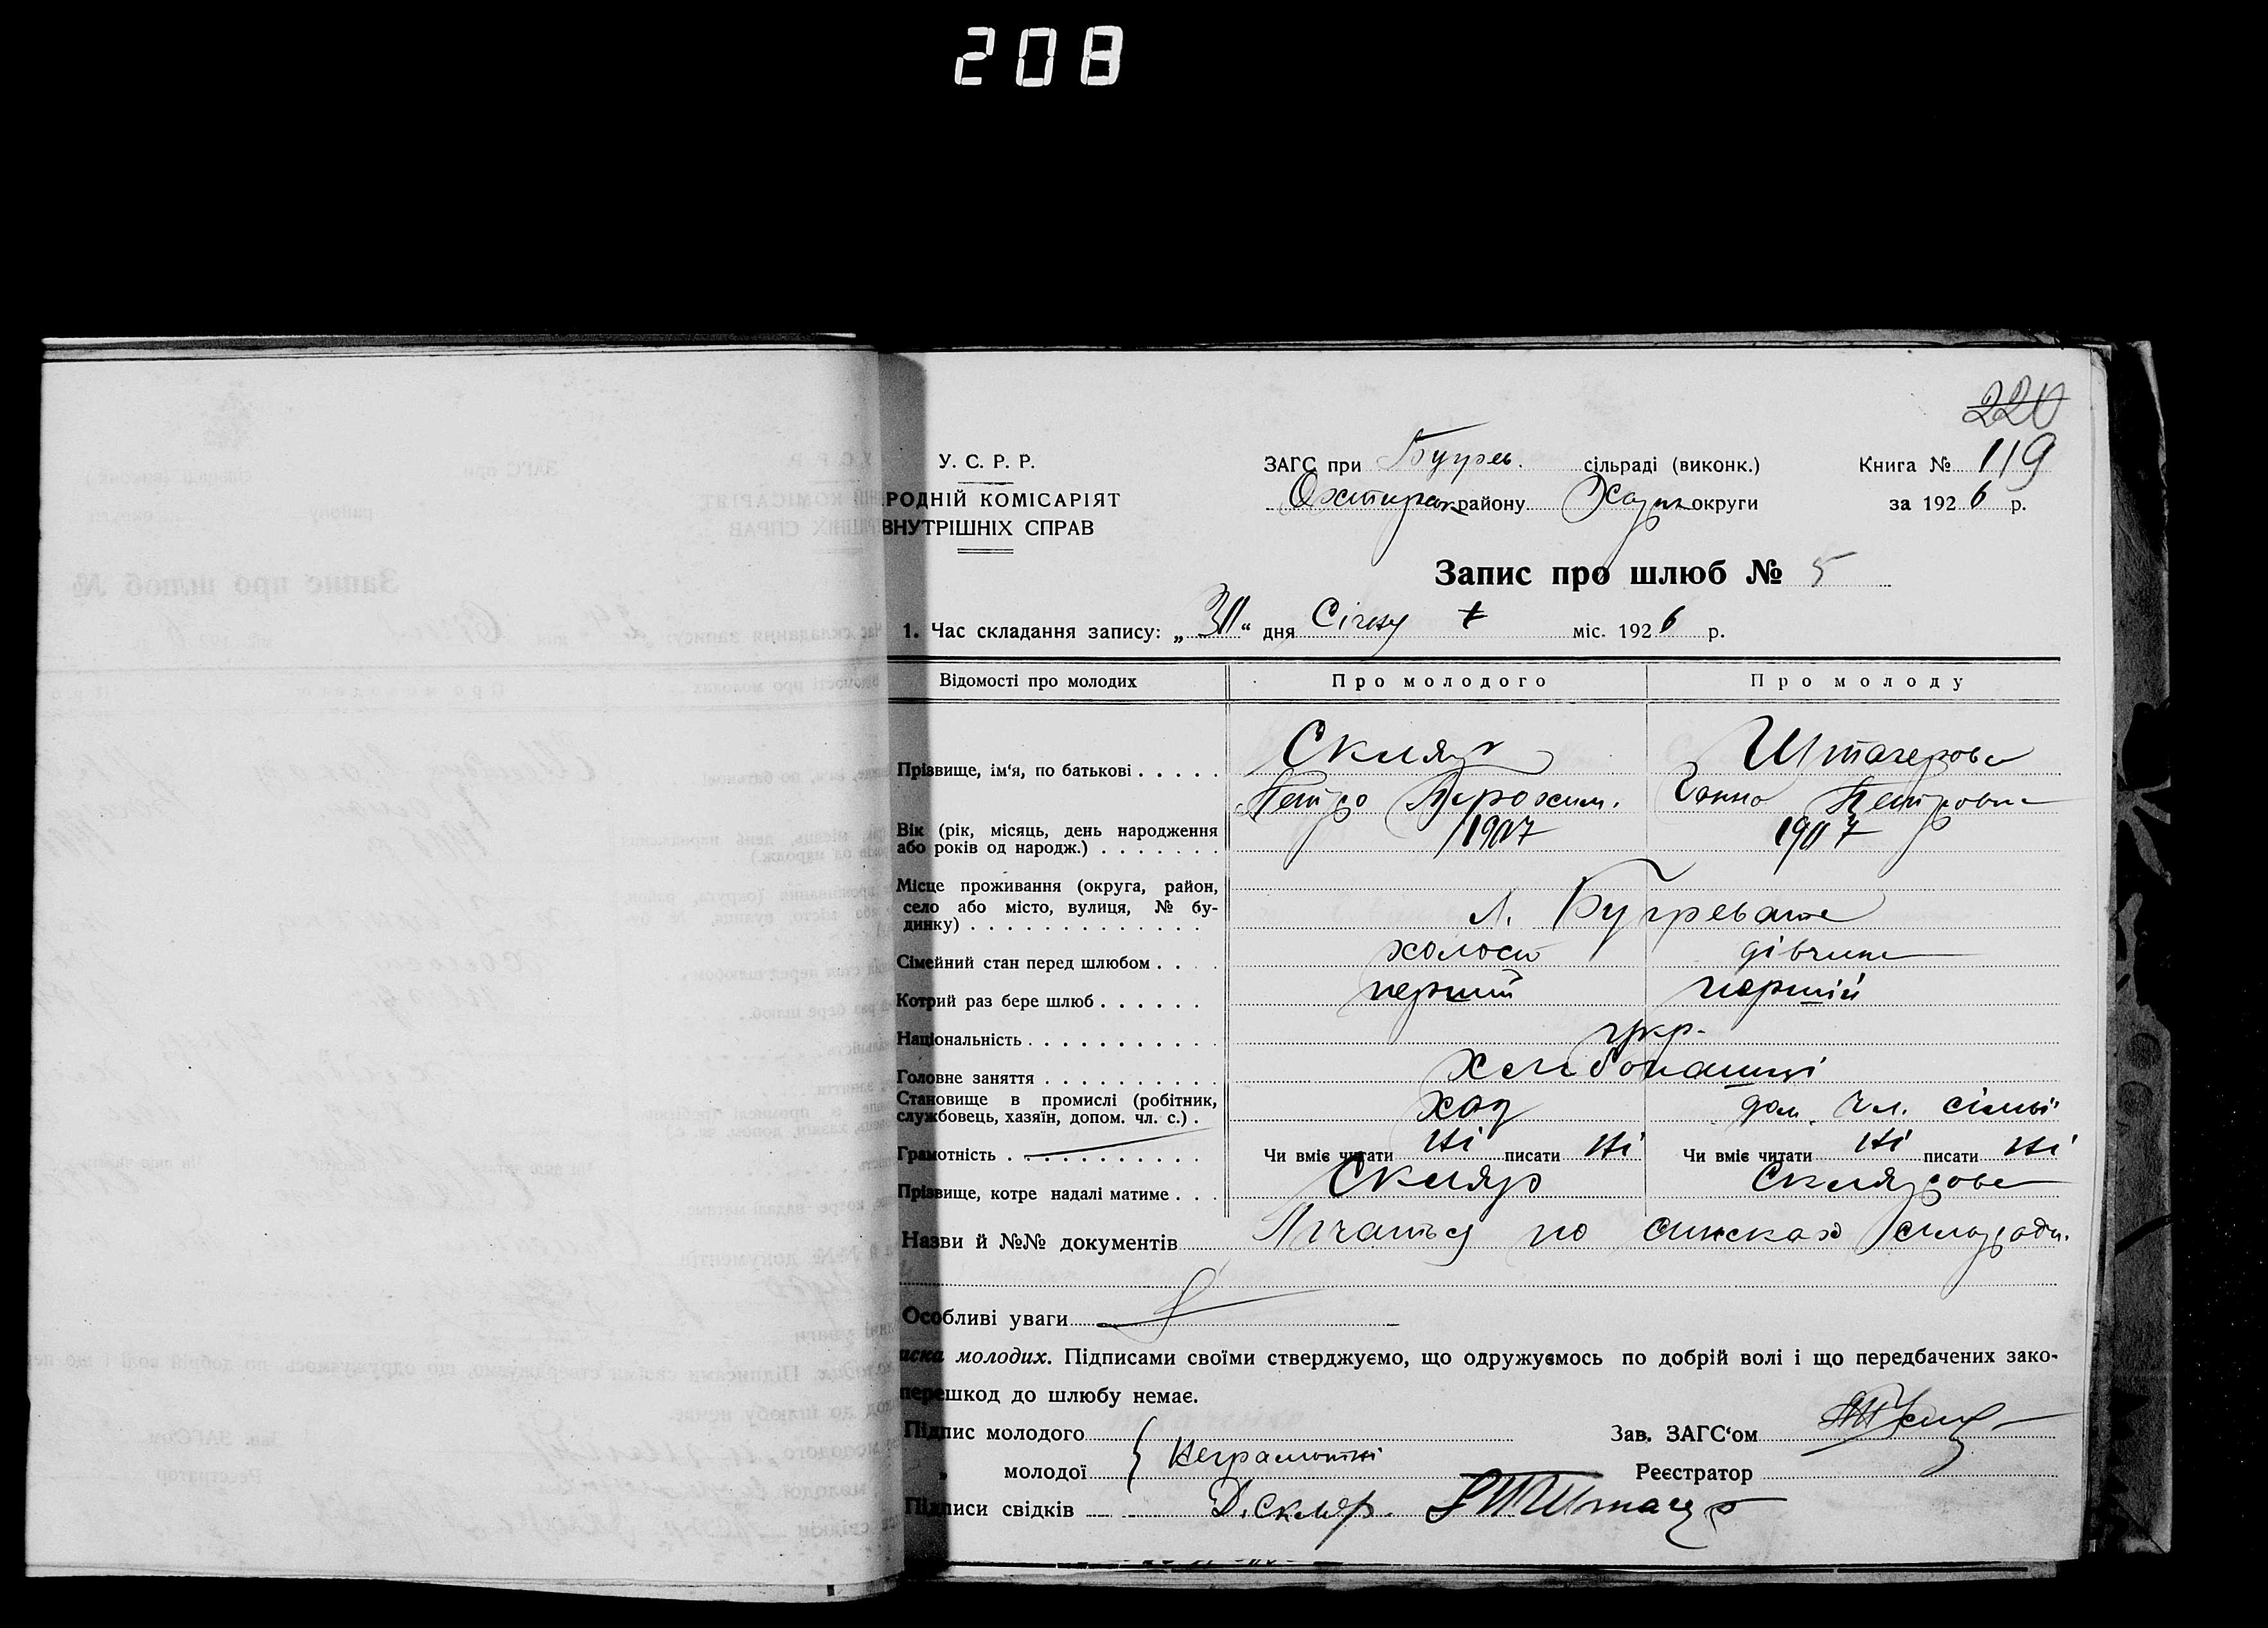 208
220
У. С. Р. Р.
РОДНІЙ КОМІСАРІЯТ
ВНУТРІШНІХ СПРАВ
ЗАГС при Бугрев. сільраді (виконк.)
Книга № 119
Охтирськ району Харк округи
за 1926 р.
Запис про шлюб № 5
1. Час складання запису: „30“ дня Січня міс. 1926 р.
Відомості про молодих Про молодого Про молоду
Прізвище, ім'я, по батькові . . . . .
Скляр Штагерова
Петро Трохим. Ганна Петровна
Вік (рік, місяць, день народження
або років од народж.) . . . . . . .
1907 1907
Місце проживання (округа, район,
село або місто, вулиця, № бу-
динку) . . . . . . . . . . . . .
Бугревате
Сімейний стан перед шлюбом . . . холост дівчина
Котрий раз бере шлюб . . . . . . перший перший
Національність . . . . . . . . . . . укр.
Головне заняття . . . . . . . . . . Хлебопашці
Становище в промислі (робітник,
службовець, хазяїн, допом. чл. с.) .
хаз дом. чл. сімьї
Грамотність . . . . . . . . . . . Чи вміє читати ні писати ні Чи вміє читати ні писати ні
Прізвище, котре надалі матиме . . . Скляр Склярова
Назви й №№ документів Лічаться по списках сільради.
Особливі уваги
иска молодих. Підписами своїми стверджуємо, що одружуємось по добрій волі і що передбачених зако-
перешкод до шлюбу немає.
Підпис молодого
Зав. ЗАГС'ом
„ молодої Неграмотні
Реєстратор
Підписи свідків Д. Скляр.